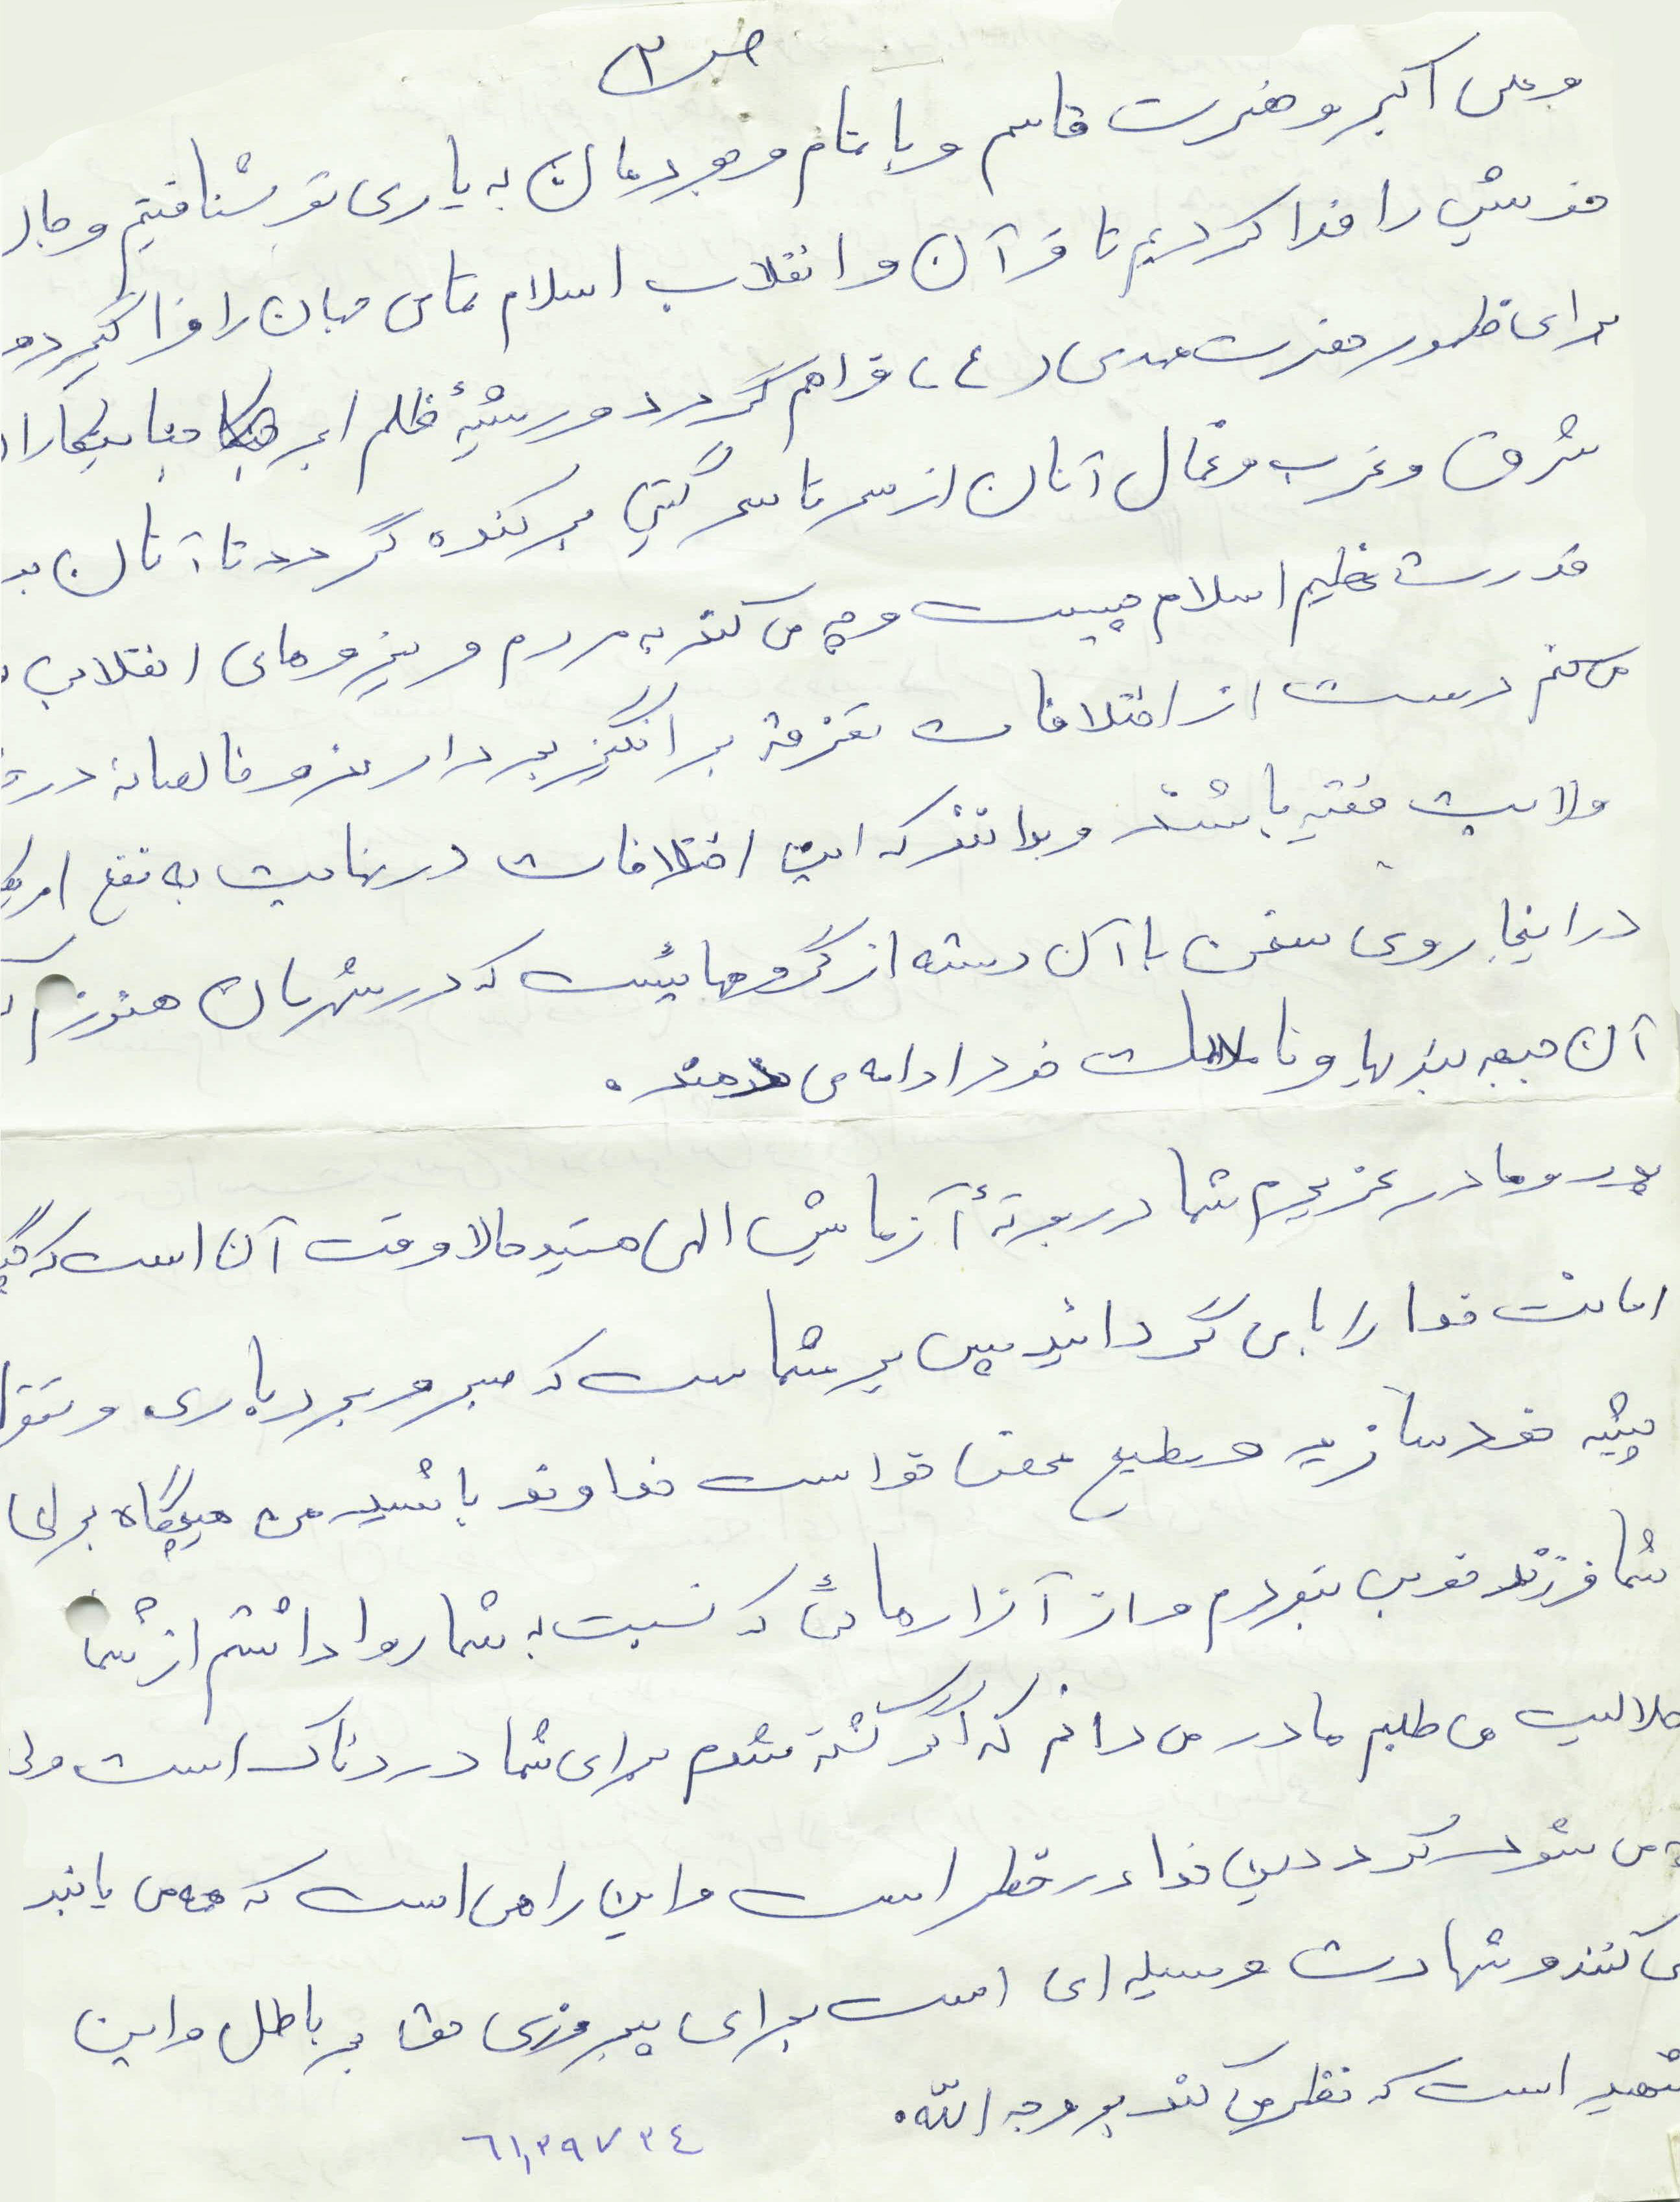 ص ۲
و علی اکبر و حضرت قاسم و با تمام وجودمان به یاری تو شتافتیم و جان
خویش را فدا کردیم تا قرآن و انقلاب اسلام تمامی جهان را فرا گیرد و
برای ظهور حضرت مهدی (ع) فراهم گردد و ریشهٔ ظلم ابر جنایتکاران
شرق و غرب و عمال آنان از سر تا سر گیتی برکنده گردد تا آنان
قدرت عظیم اسلام چیست و چه می کند به مردم و نیروهای انقلابی
می کنم دست از اختلافات تفرقه برانگیز بردارند و خالصانه در
ولایت فقیه باشند و بدانند که این اختلافات در نهایت به نفع امریکا
در اینجا روی سخن با آن دسته از گروههائیست که در شهرمان هنوز هم
آن جبهه بندیها و ناملایمات خود ادامه می دهند.
پدر و مادر عزیزم شما در بوتهٔ آزمایش الهی هستید حالا وقت آن است که
امانت خدا را باز گردانید پس بر شماست که صبر و بردباری و تقوا
پیشه خود سازید و مطیع محض خواست خداوند باشید من هیچگاه برای
شما فرزند خوبی نبودم و از آزارهائی که نسبت به شما روا داشتم از شما
حلالیت می طلبم مادر می دانم که اگر کشته شدم برای شما دردناک است ولی
چه می شود کرد دین خدا در خطر است و این راهی است که همه می یابند
می کنند و شهادت وسیله ای است برای پیروزی حق بر باطل و این
شهید است که نظر می کند بر وجه الله.
٦١٫٣٩٧٣٤